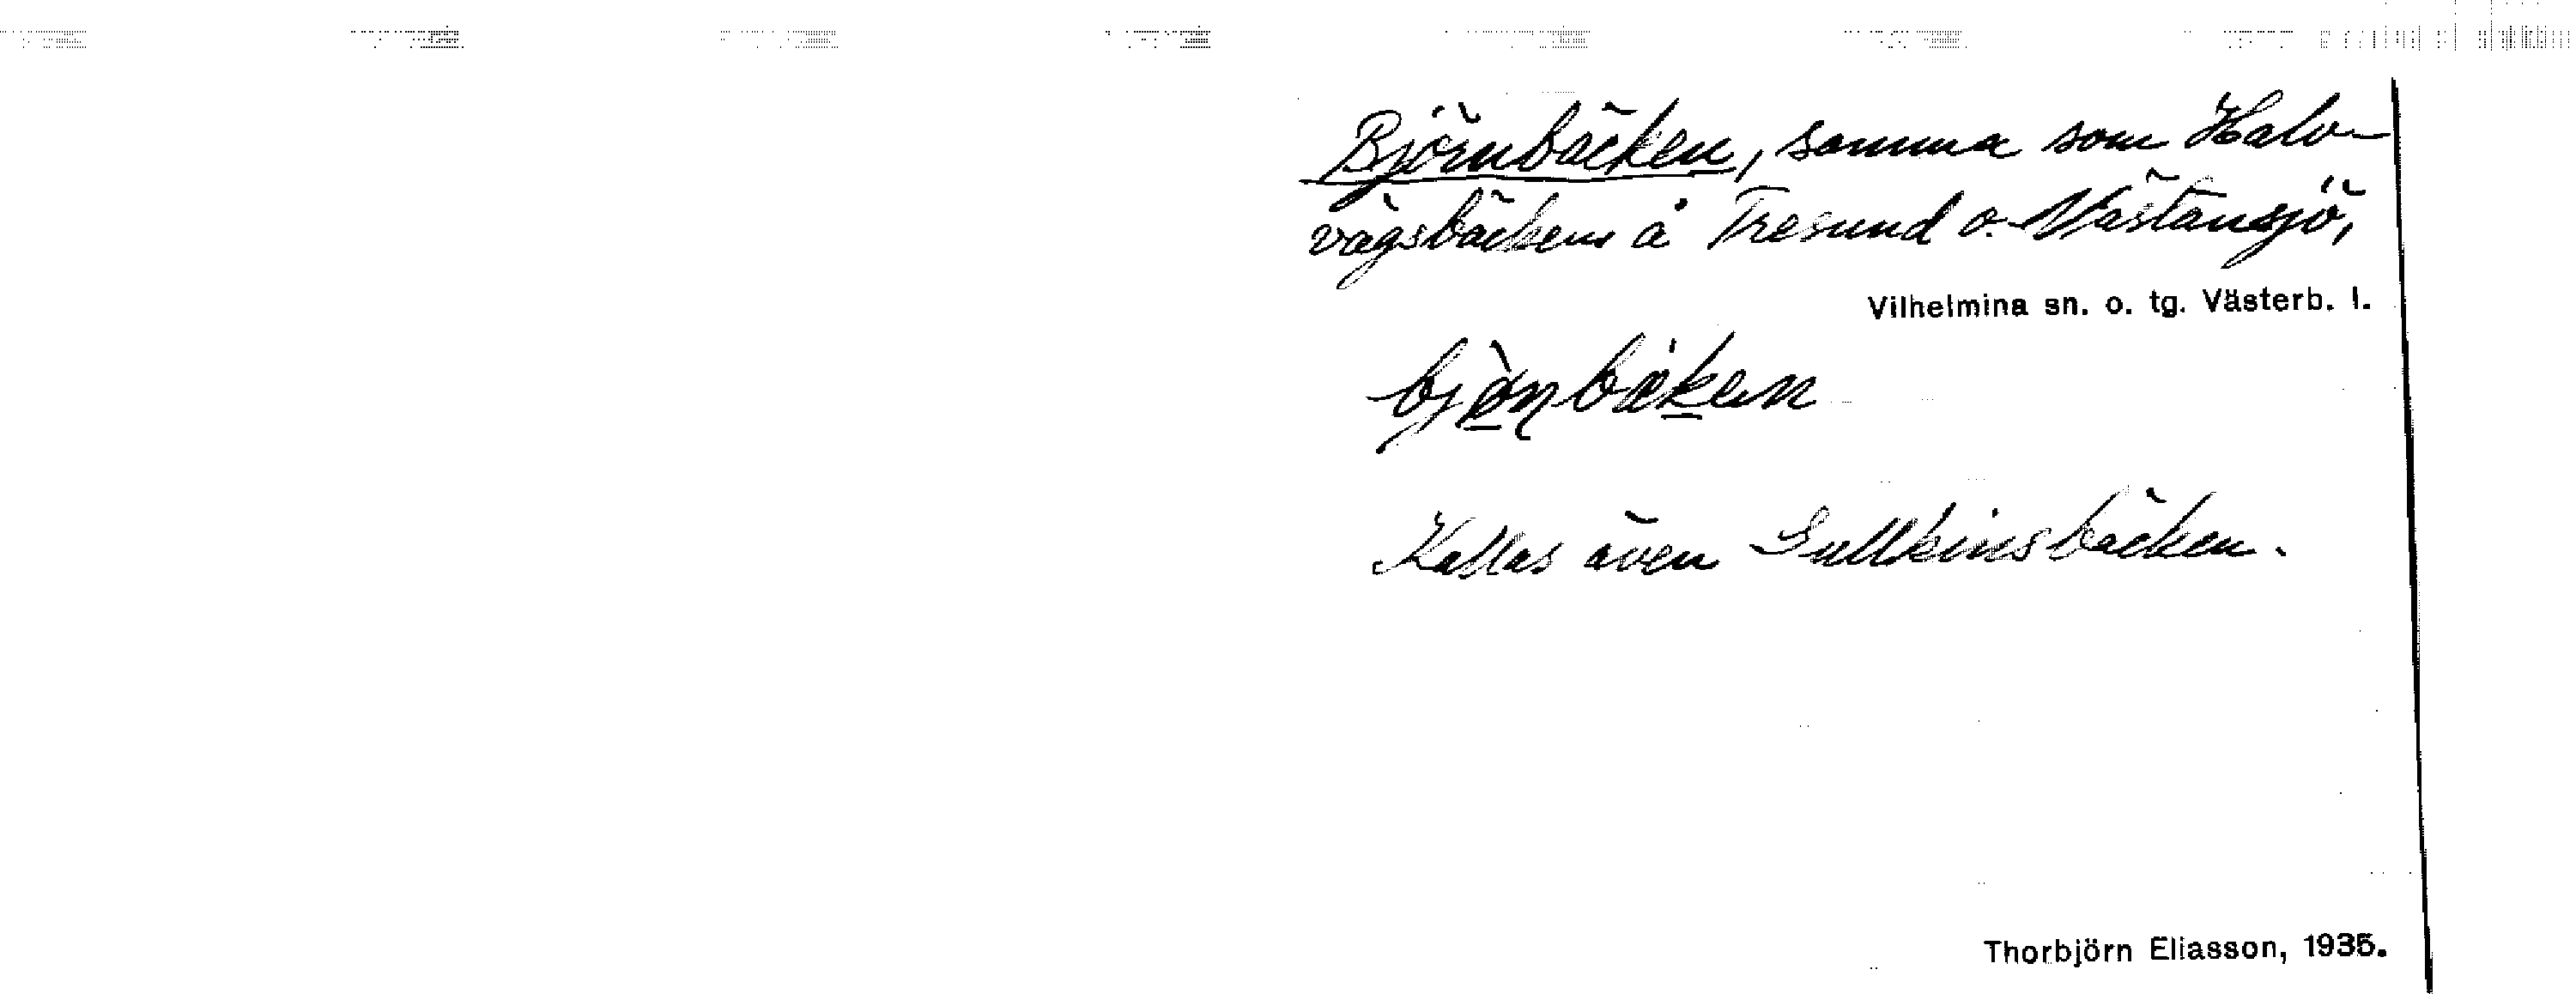 Björnbäcken, samma som Halv-
vägsbäcken å Tresund o. Västansjö,
Vilhelmina sn. o. tg. Västerb. l.
bjö̀ṉbäḵen
Kallas även Gullkinsbäcken.
Thorbjörn Eliasson, 1935.